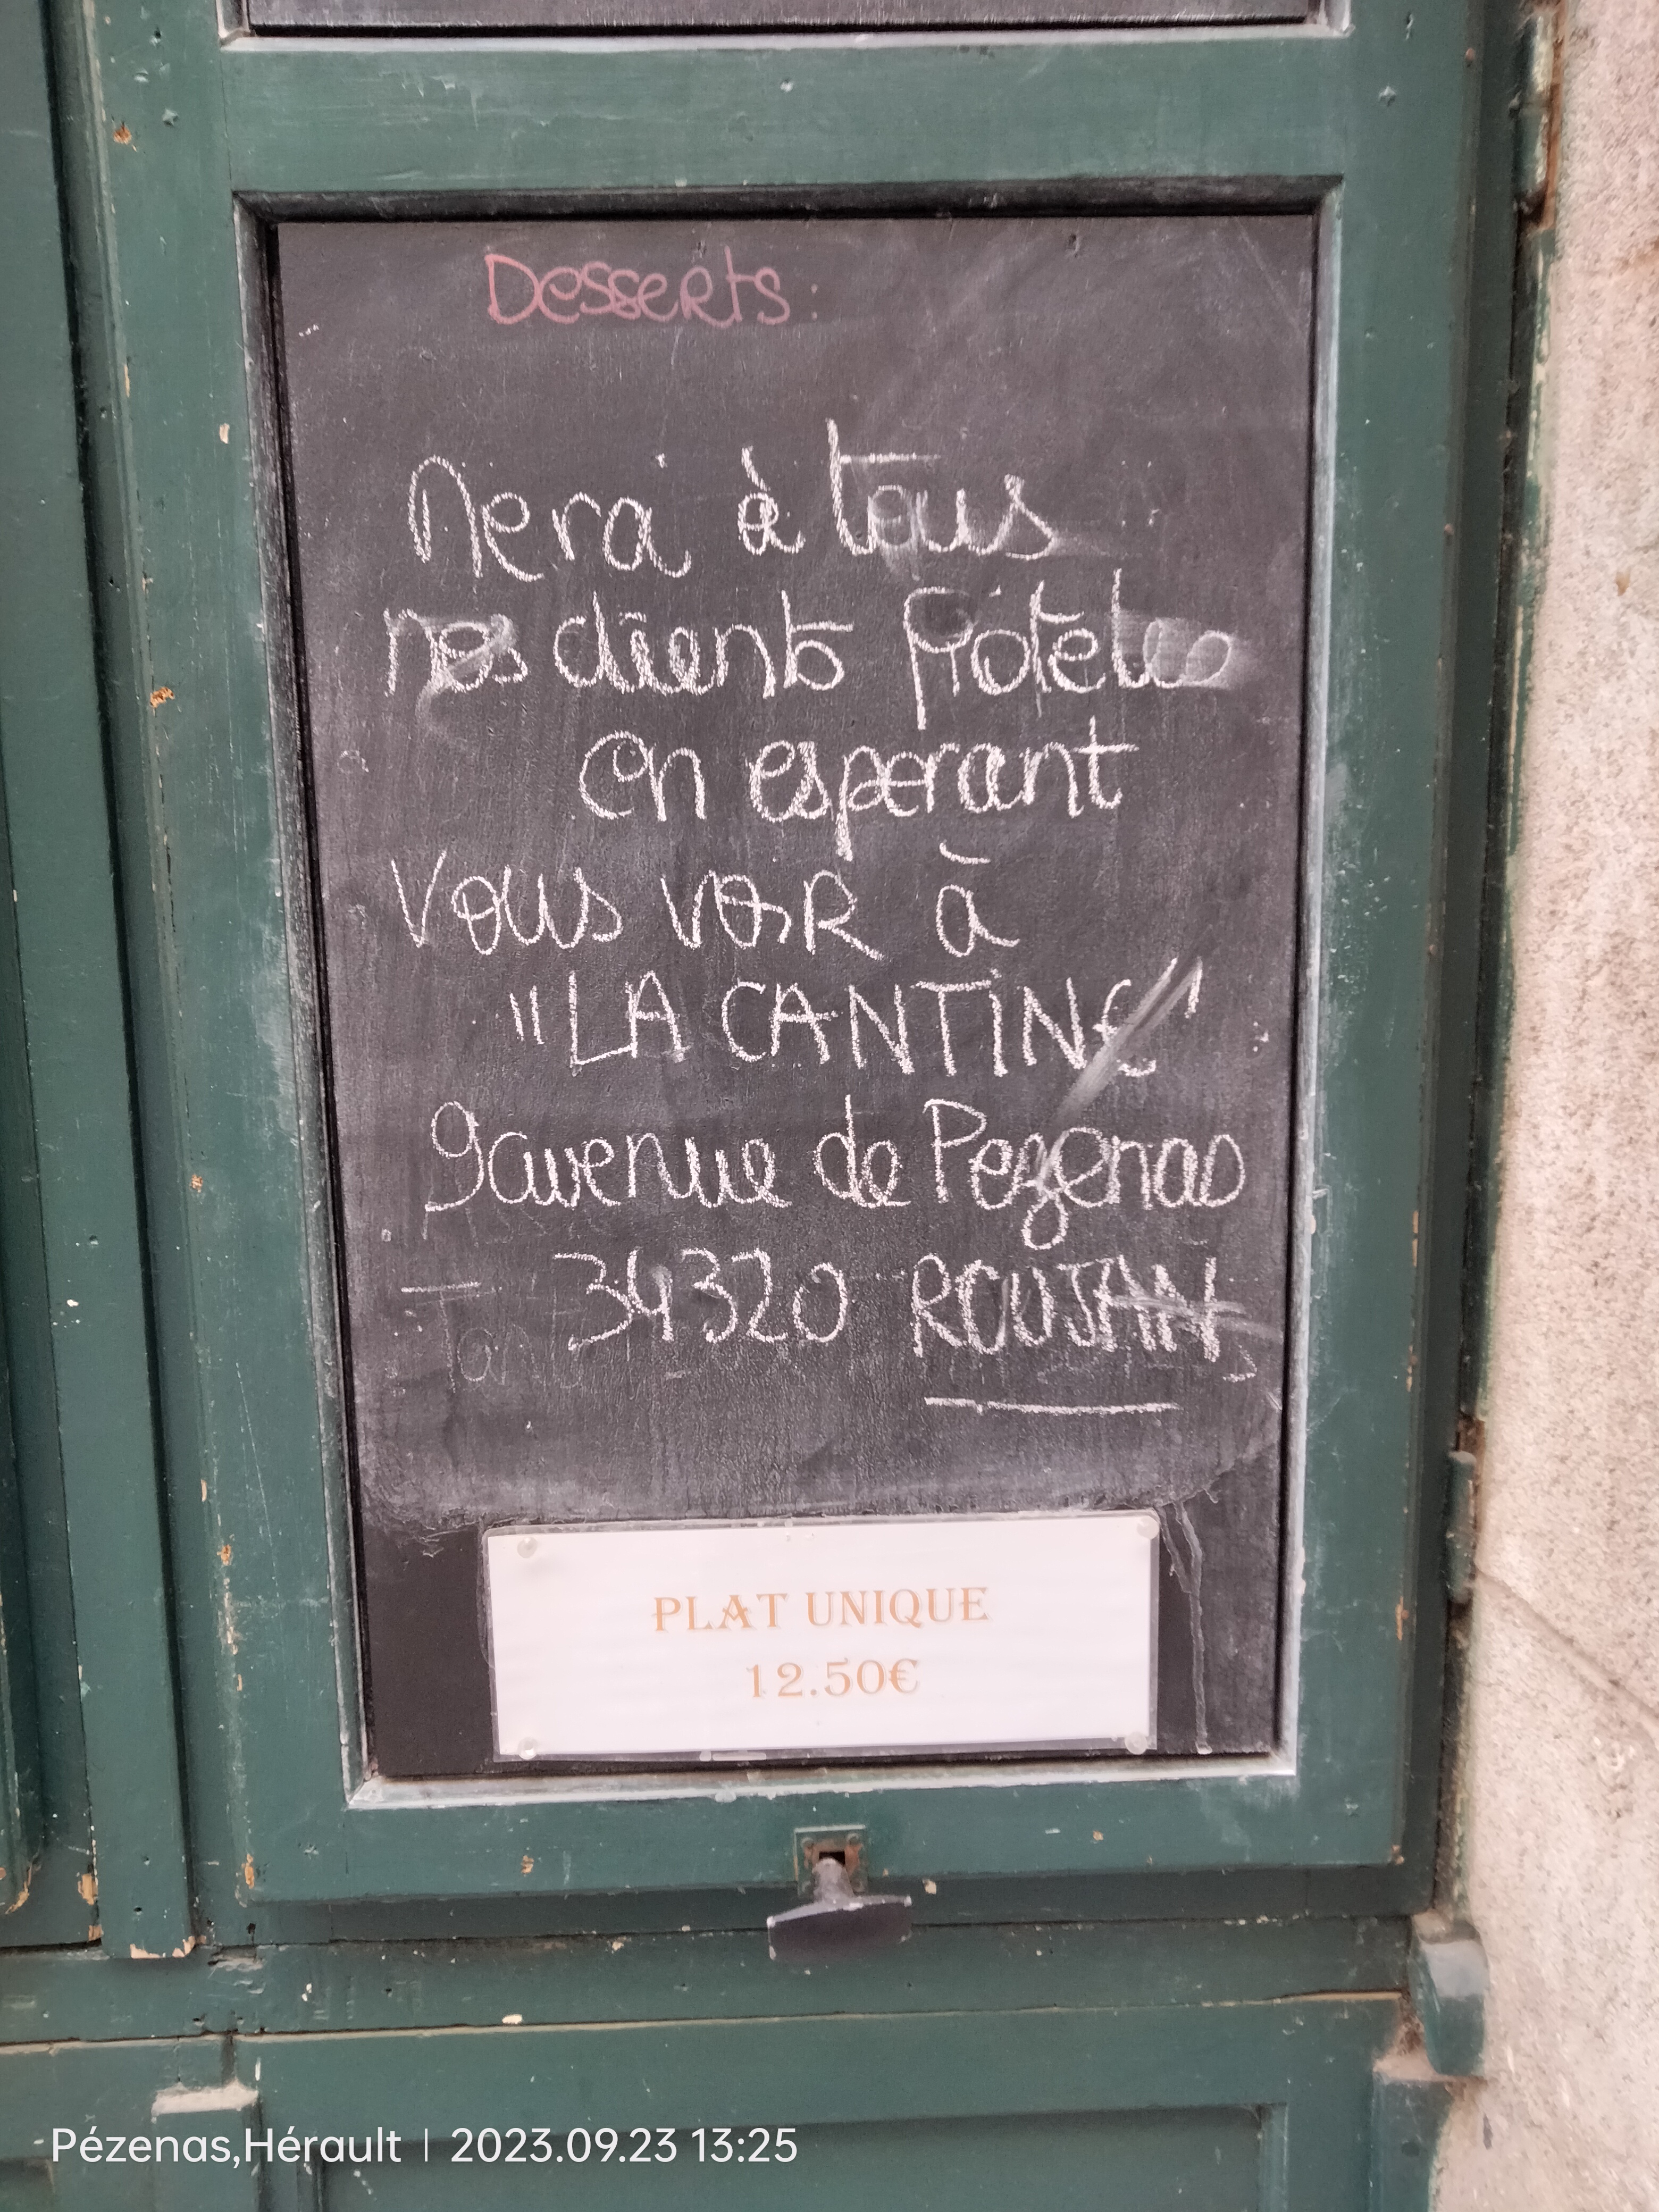 Desserts:
Merci à tous
nos clients fidèles
en esperant
vous voir à
"LA CANTINE"
9 avenue de Pezenas
34320 ROUJAN
PLAT UNIQUE
12.50€
Pézenas,Hérault | 2023.09.23 13:25